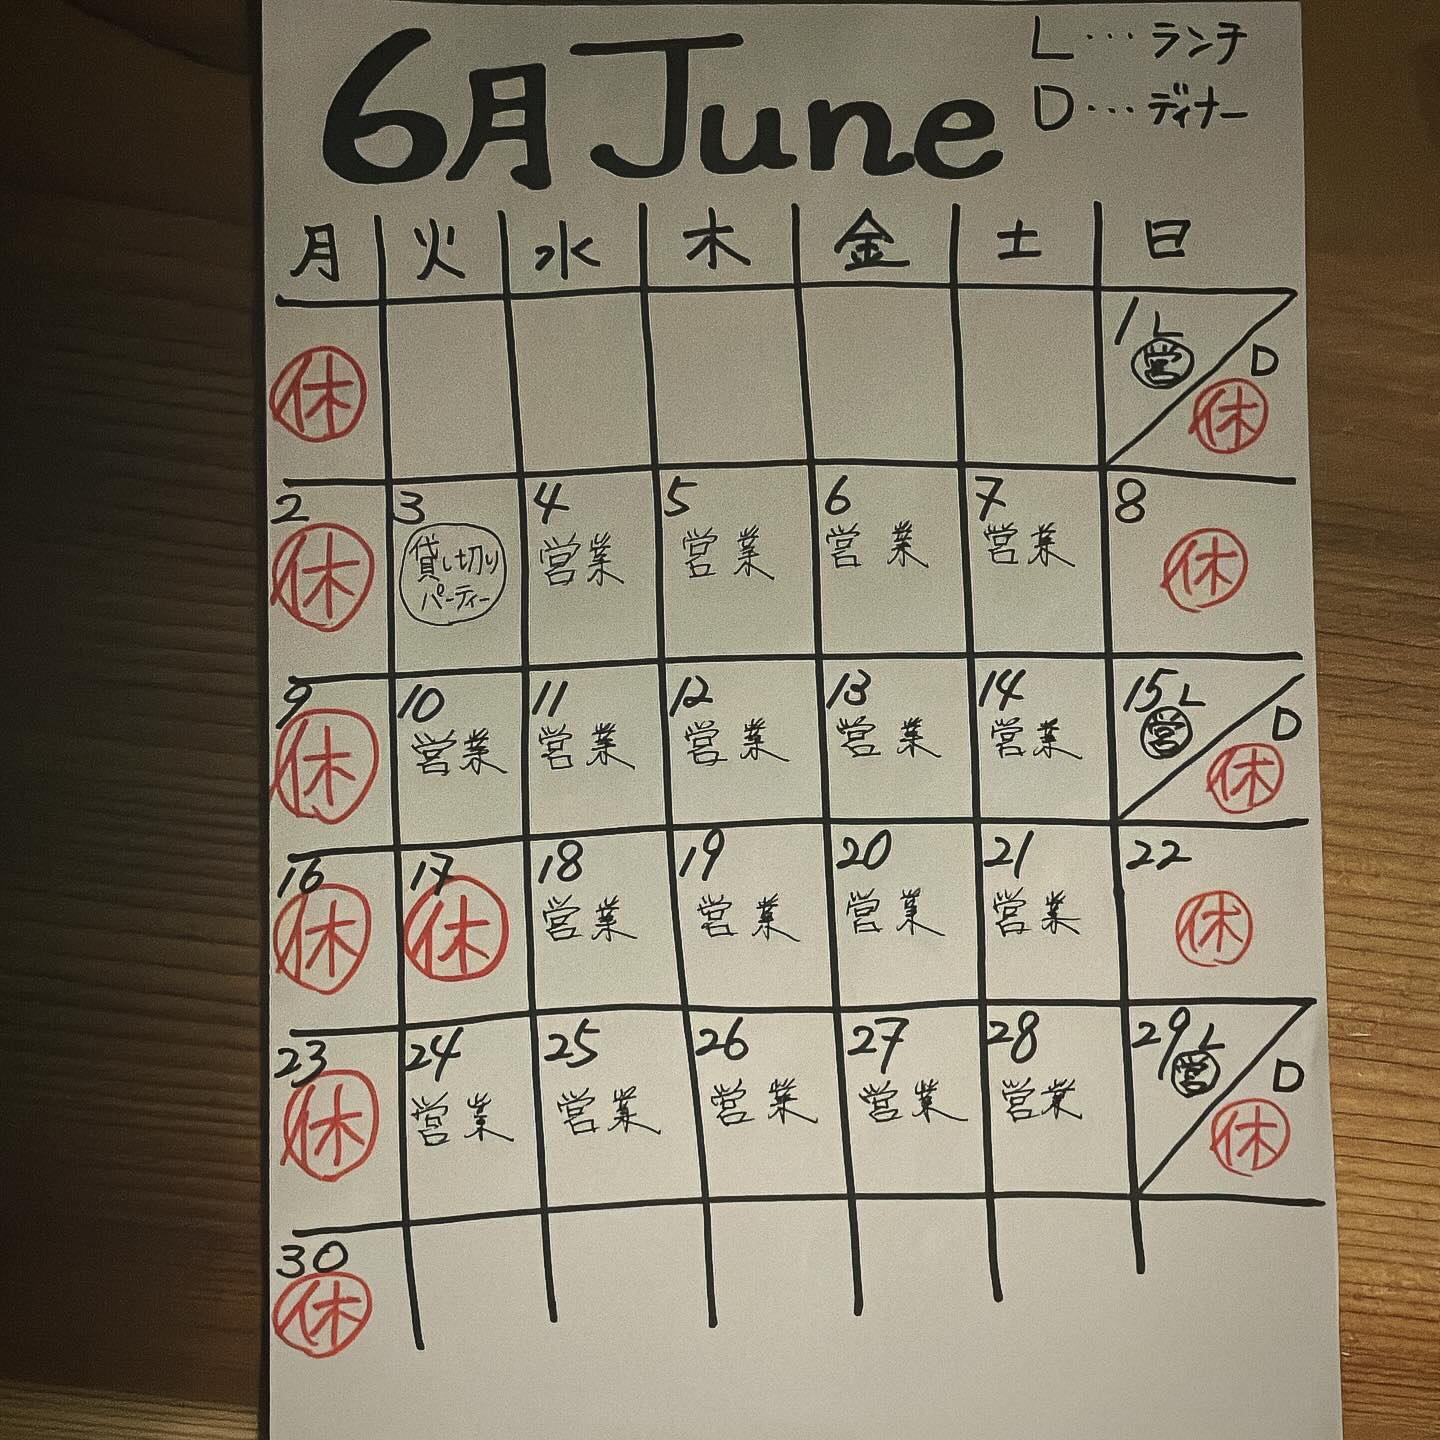 6月 June
L…ランチ
D…ディナー
月 火 水 木 金 土 日
休 1 L 営 D 休
2 休 3 貸し切りパーティー 4 営業 5 営業 6 営業 7 営業 8 休
9 休 10 営業 11 営業 12 営業 13 営業 14 営業 15 L 営 D 休
16 休 17 休 18 営業 19 営業 20 営業 21 営業 22 休
23 休 24 営業 25 営業 26 営業 27 営業 28 営業 29 L 営 D 休
30 休